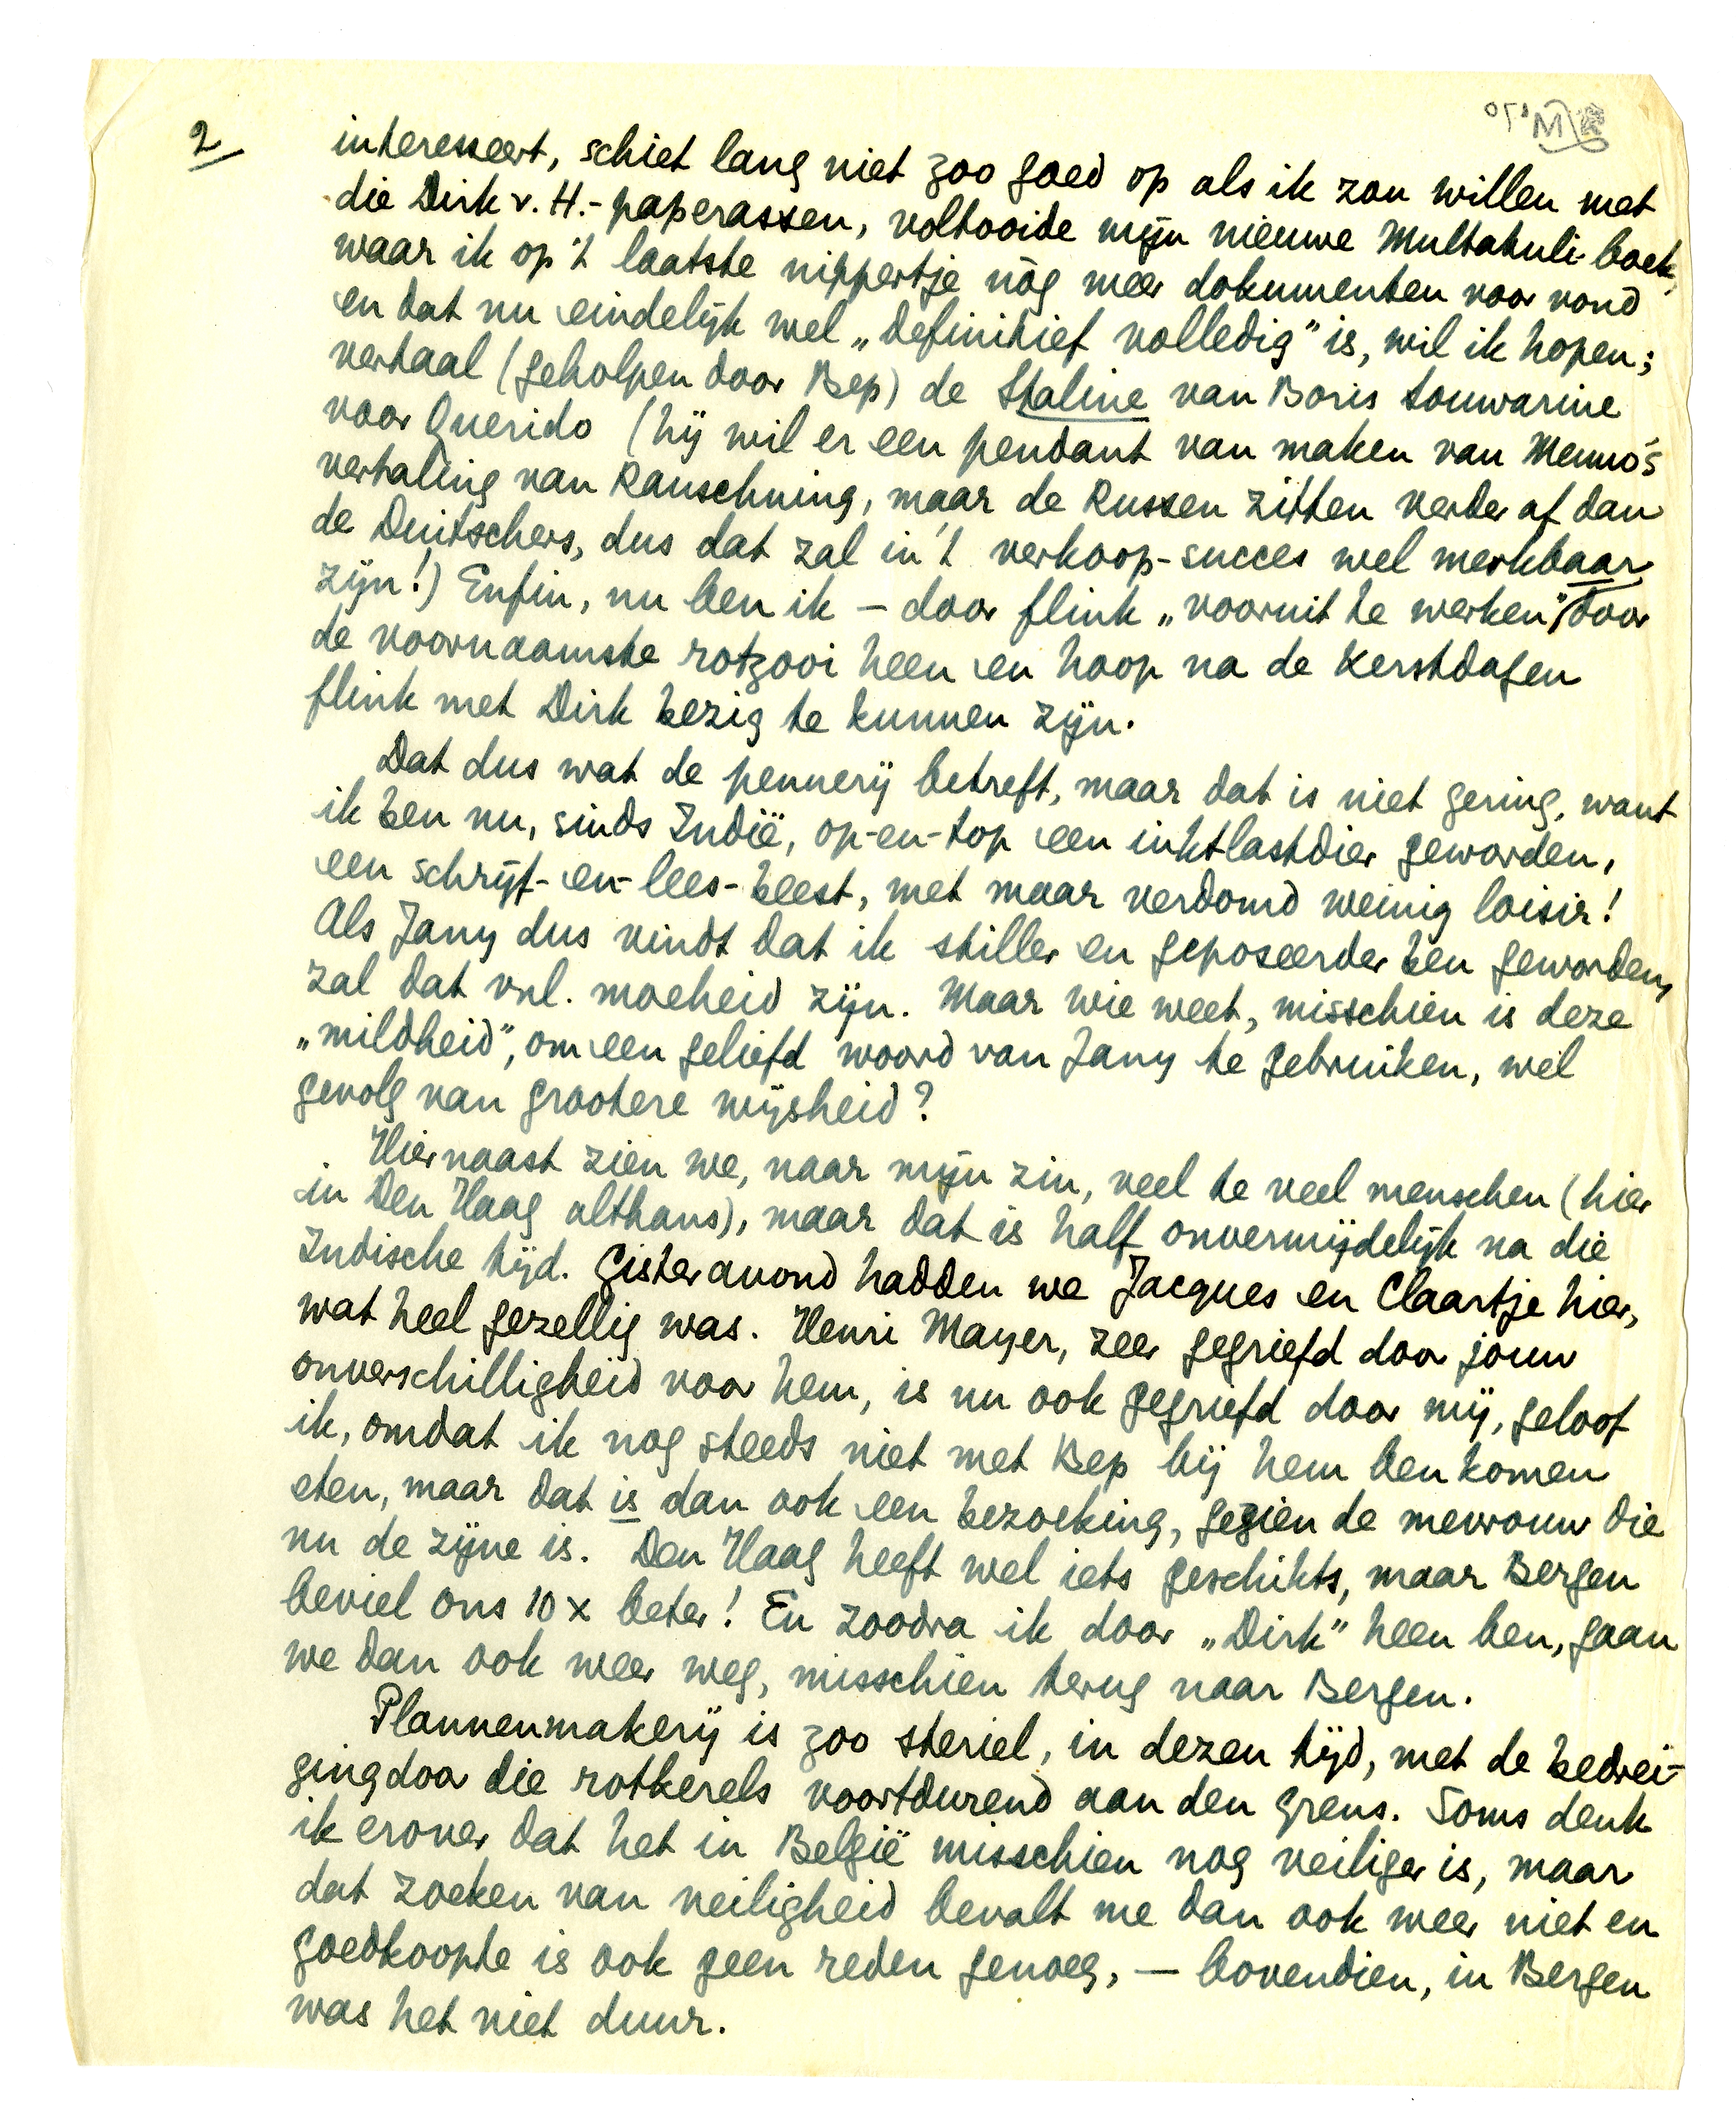 2
interesseert, schiet lang niet zoo goed op als ik zou willen met
die Dirk v. H.-paperassen, voltooide mijn nieuwe Multatuli-boek,
waar ik op 't laatste nippertje nòg meer dokumenten voor vond
en dat nu eindelijk wel „definitief volledig” is, wil ik hopen;
vertaal (geholpen door Bep) de Staline van Boris Souwarine
voor Querido (hij wil er een pendant van maken van Menno's
vertaling van Rauschning, maar de Russen zitten verder af dan
de Duitschers, dus dat zal in 't verkoop-succes wel merkbaar
zijn!) Enfin, nu ben ik — door flink „vooruit te werken” door
de voornaamste rotzooi heen en hoop na de Kerstdagen
flink met Dirk bezig te kunnen zijn.
Dat dus wat de pennerij betreft, maar dat is niet gering, want
ik ben nu, sinds Indië, op-en-top een inktlastdier geworden,
een schrijf-en-lees-beest, met maar verdomd weinig loisir!
Als Jany dus vindt dat ik stiller en geposeerder ben geworden,
zal dat vnl. moeheid zijn. Maar wie weet, misschien is deze
„mildheid”, om een geliefd woord van Jany te gebruiken, wel
gevolg van grootere wijsheid?
Hiernaast zien we, naar mijn zin, veel te veel menschen (hier
in Den Haag althans), maar dat is half onvermijdelijk na die
Indische tijd. Gisteravond hadden we Jacques en Claartje hier,
wat heel gezellig was. Henri Mayer, zeer gegriefd door jouw
onverschilligheid voor hem, is nu ook gegriefd door mij, geloof
ik, omdat ik nog steeds niet met Bep bij hem ben komen
eten, maar dat is dan ook een bezoeking, gezien de mevrouw die
nu de zijne is. Den Haag heeft wel iets geschikts, maar Bergen
beviel ons 10 x beter! En zoodra ik door „Dirk” heen ben, gaan
we dan ook weer weg, misschien terug naar Bergen.
Plannenmakerij is zoo steriel, in dezen tijd, met de bedrei-
ging door die rotkerels voortdurend aan den grens. Soms denk
ik erover dat het in België misschien nog veiliger is, maar
dat zoeken van veiligheid bevalt me dan ook weer niet en
goedkoopte is ook geen reden genoeg, — bovendien, in Bergen
was het niet duur.